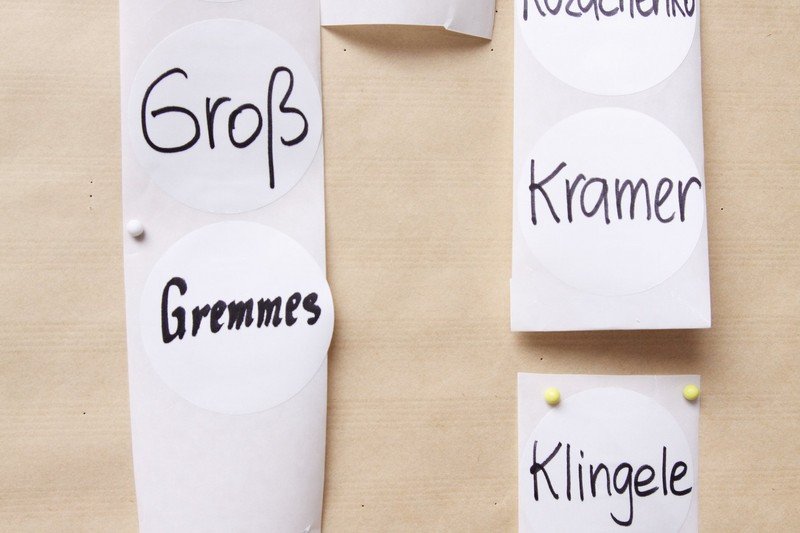 Groß
Gremmes
Kozachenko
Kramer
Klingele